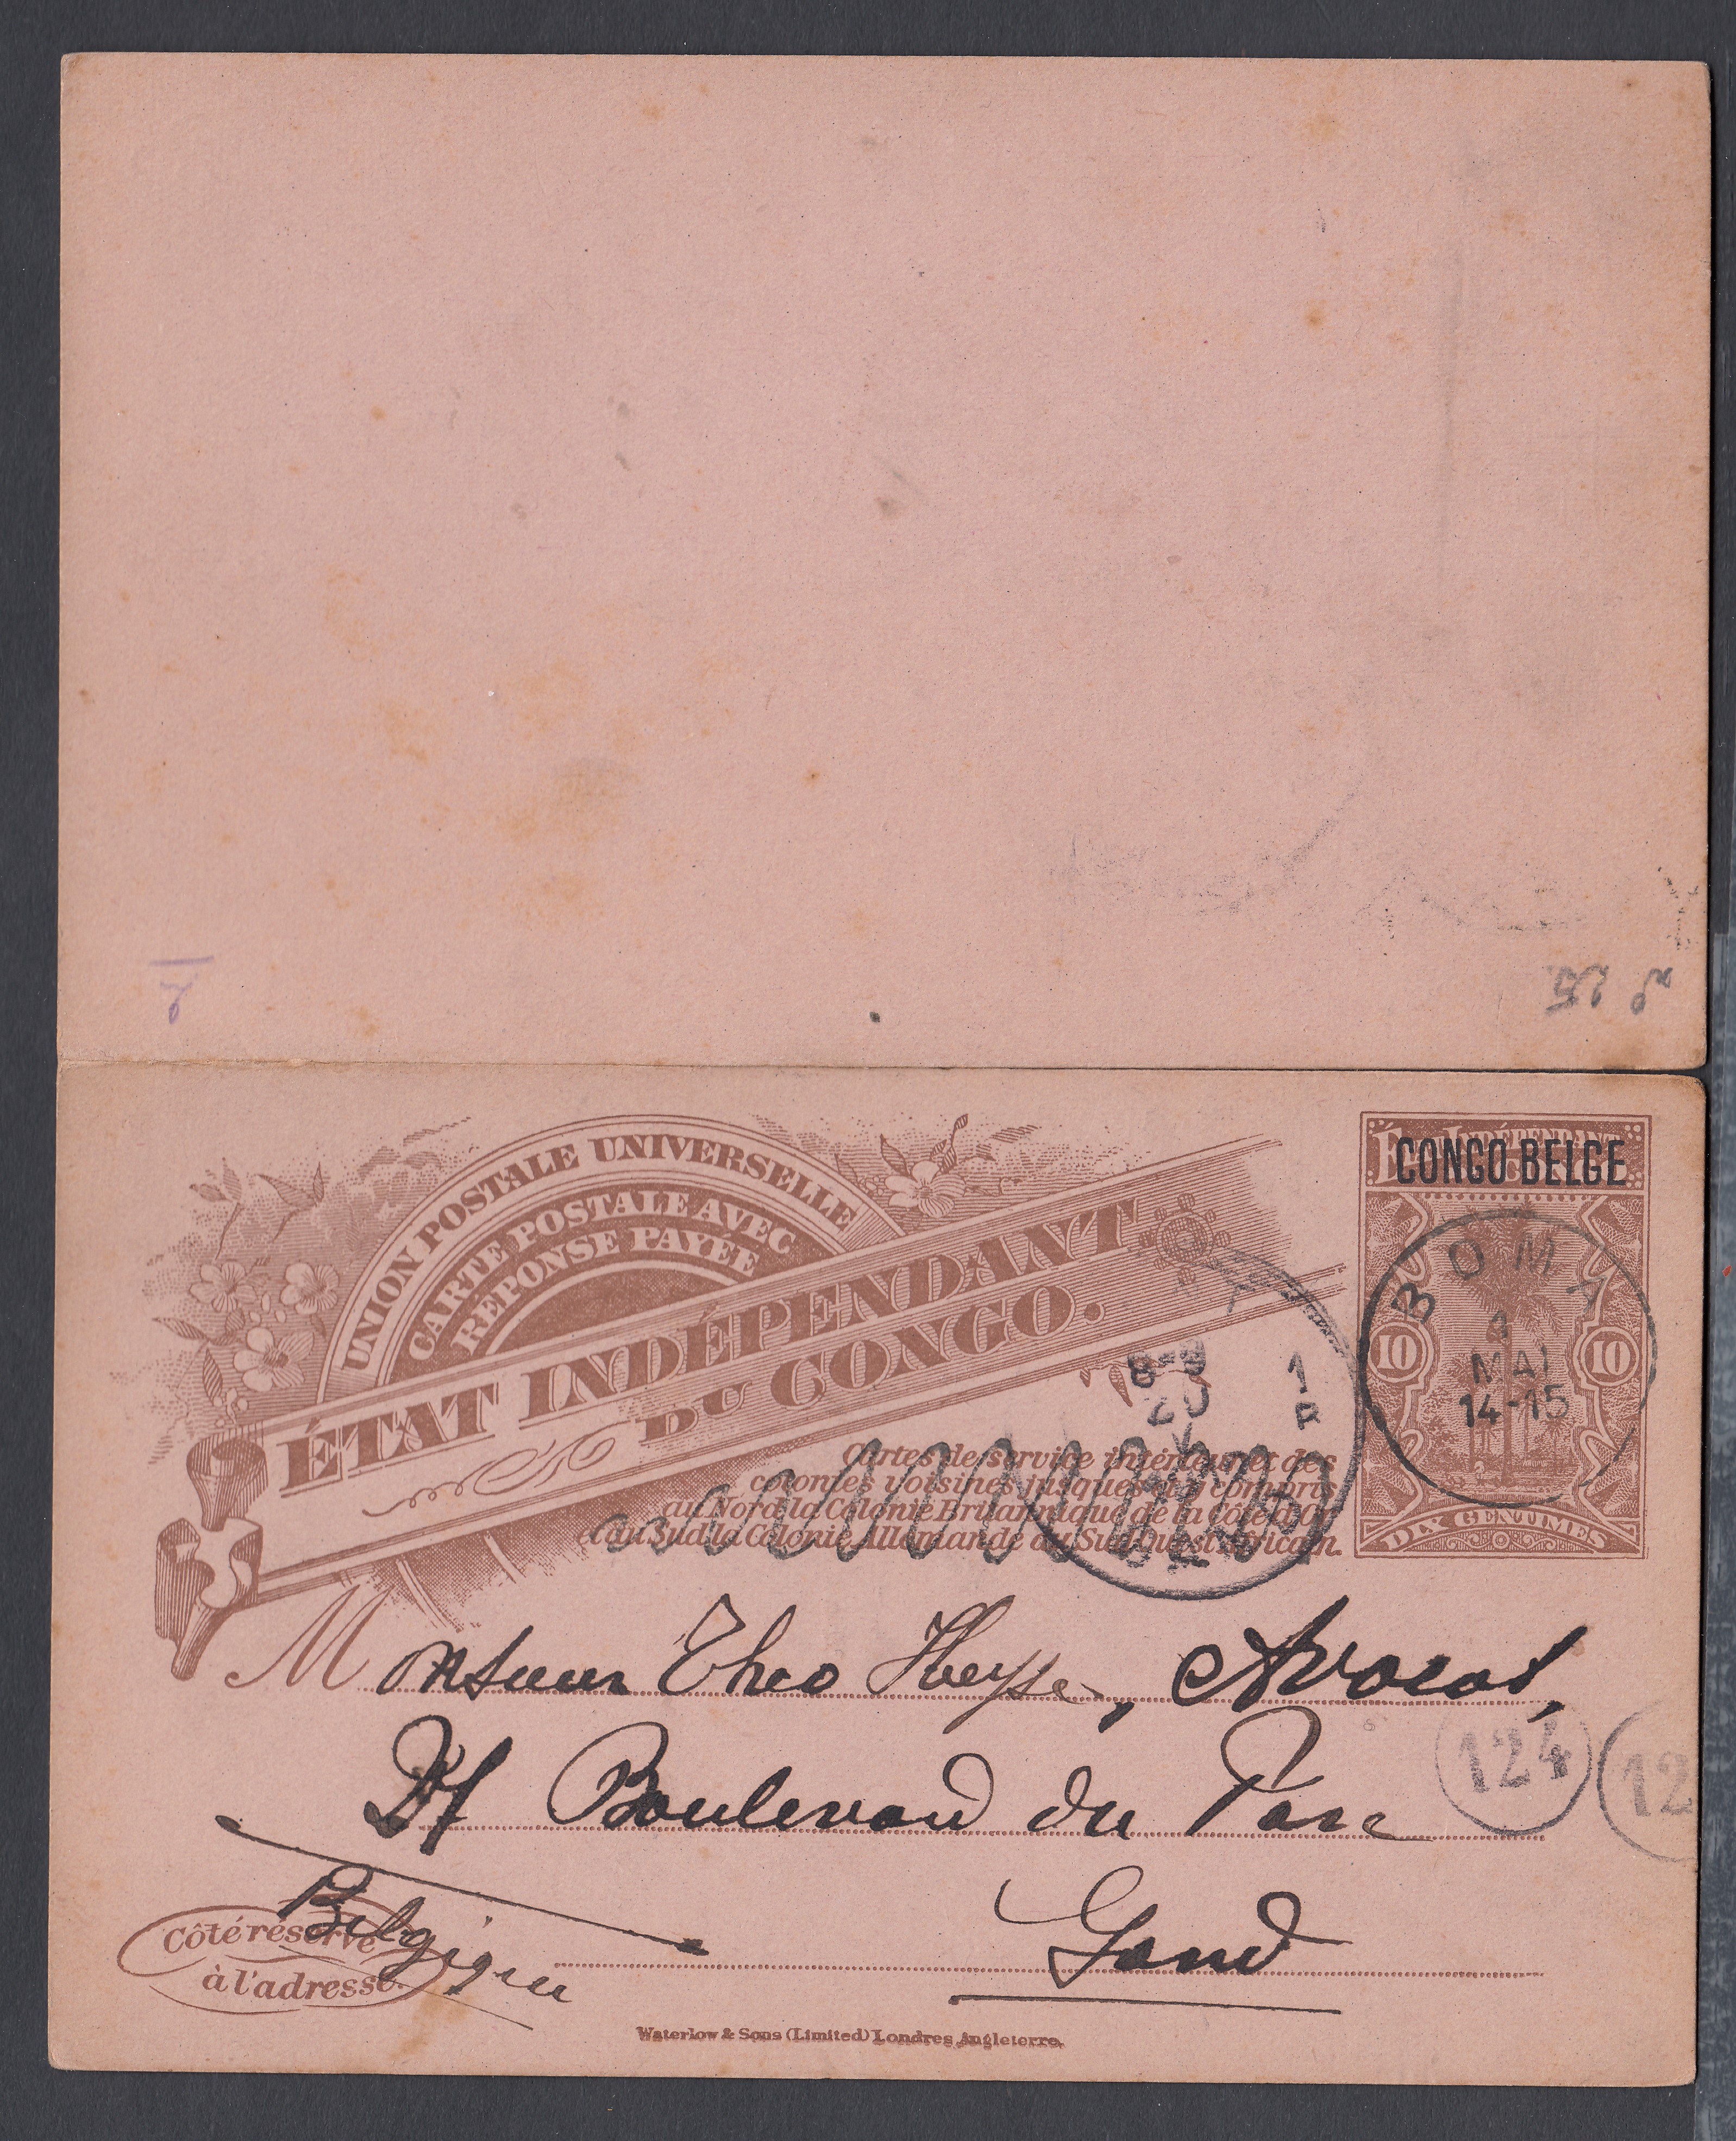 UNION POSTALE UNIVERSELLE
CARTE POSTALE AVEC
RÉPONSE PAYÉE
ÉTAT INDÉPENDANT
DU CONGO.
CONGO BELGE
10 10
DIX CENTIMES
BOMA
4
MAI
14-15
8-9
1
B
Cartes de service intérieur et des
colonies voisines jusques et y compris
au Nord la Colonie Britannique de la Côte d'Or
et au Sud la Colonie Allemande du Sud-Ouest Africain.
Monsieur Theo Heyse, Avocat,
Boulevard du Parc
124
12
Gand
Belgique
Côté réservé
à l'adresse.
Waterlow & Sons (Limited) Londres Angleterre.